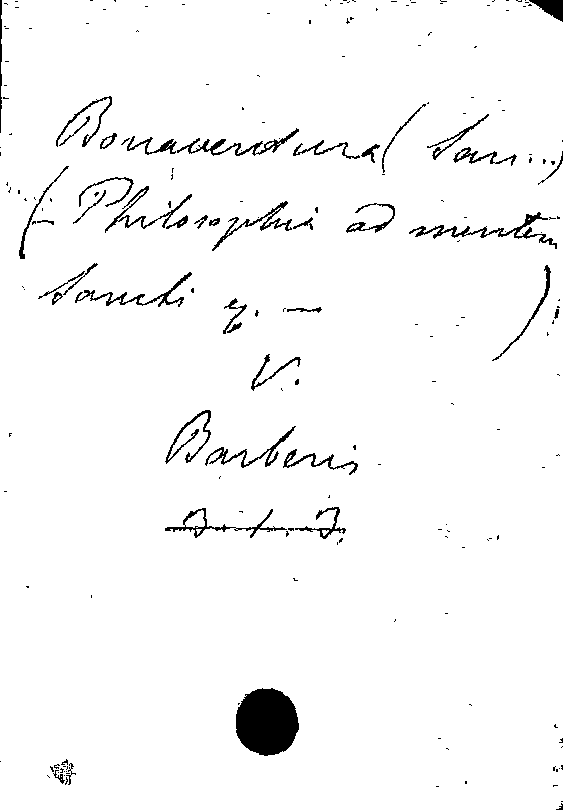 Bonaventura (San...)
(- Philosophia ad mentem
Sancti z. —)
V.
Barberis